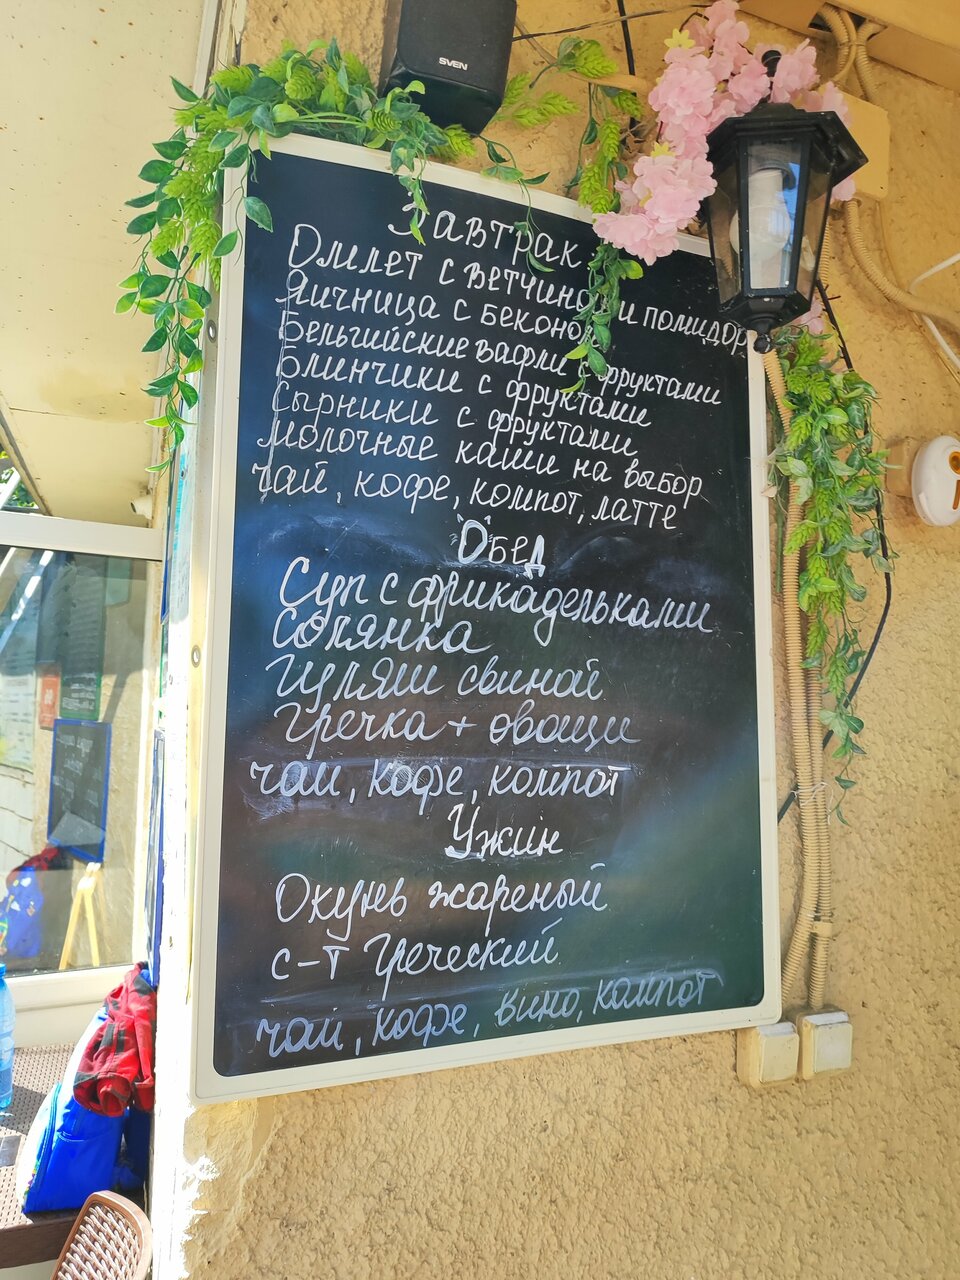 SVEN
Завтрак
Омлет с ветчиной и помидор
Яичница с беконом
Бельгийские вафли с фруктами
Блинчики с фруктами
Сырники с фруктами
Молочные каши на выбор
чай, кофе, компот, латте
Обед
Суп с фрикадельками
Солянка
Гуляш свиной
гречка + овощи
чай, кофе, компот
Ужин
Окунь жареный
с-т греческий
чай, кофе, вино, компот